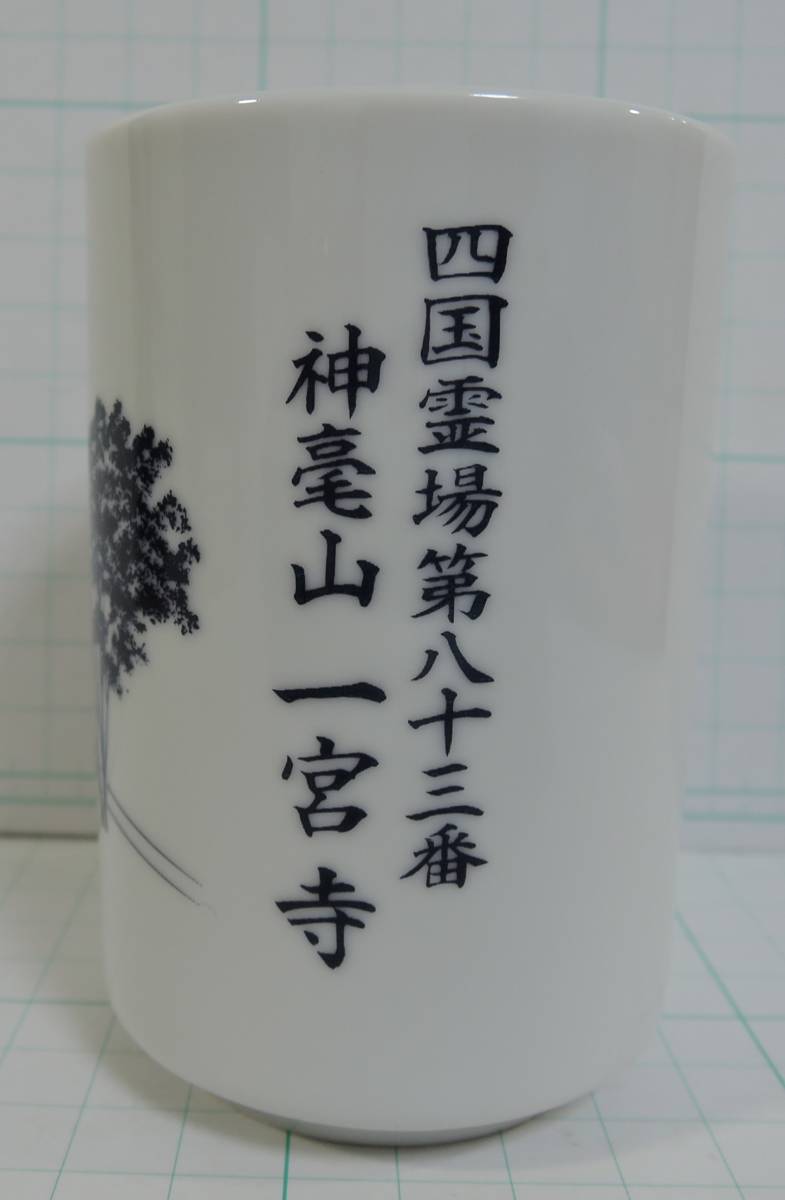 四国霊場第八十三番
神毫山 一宮寺